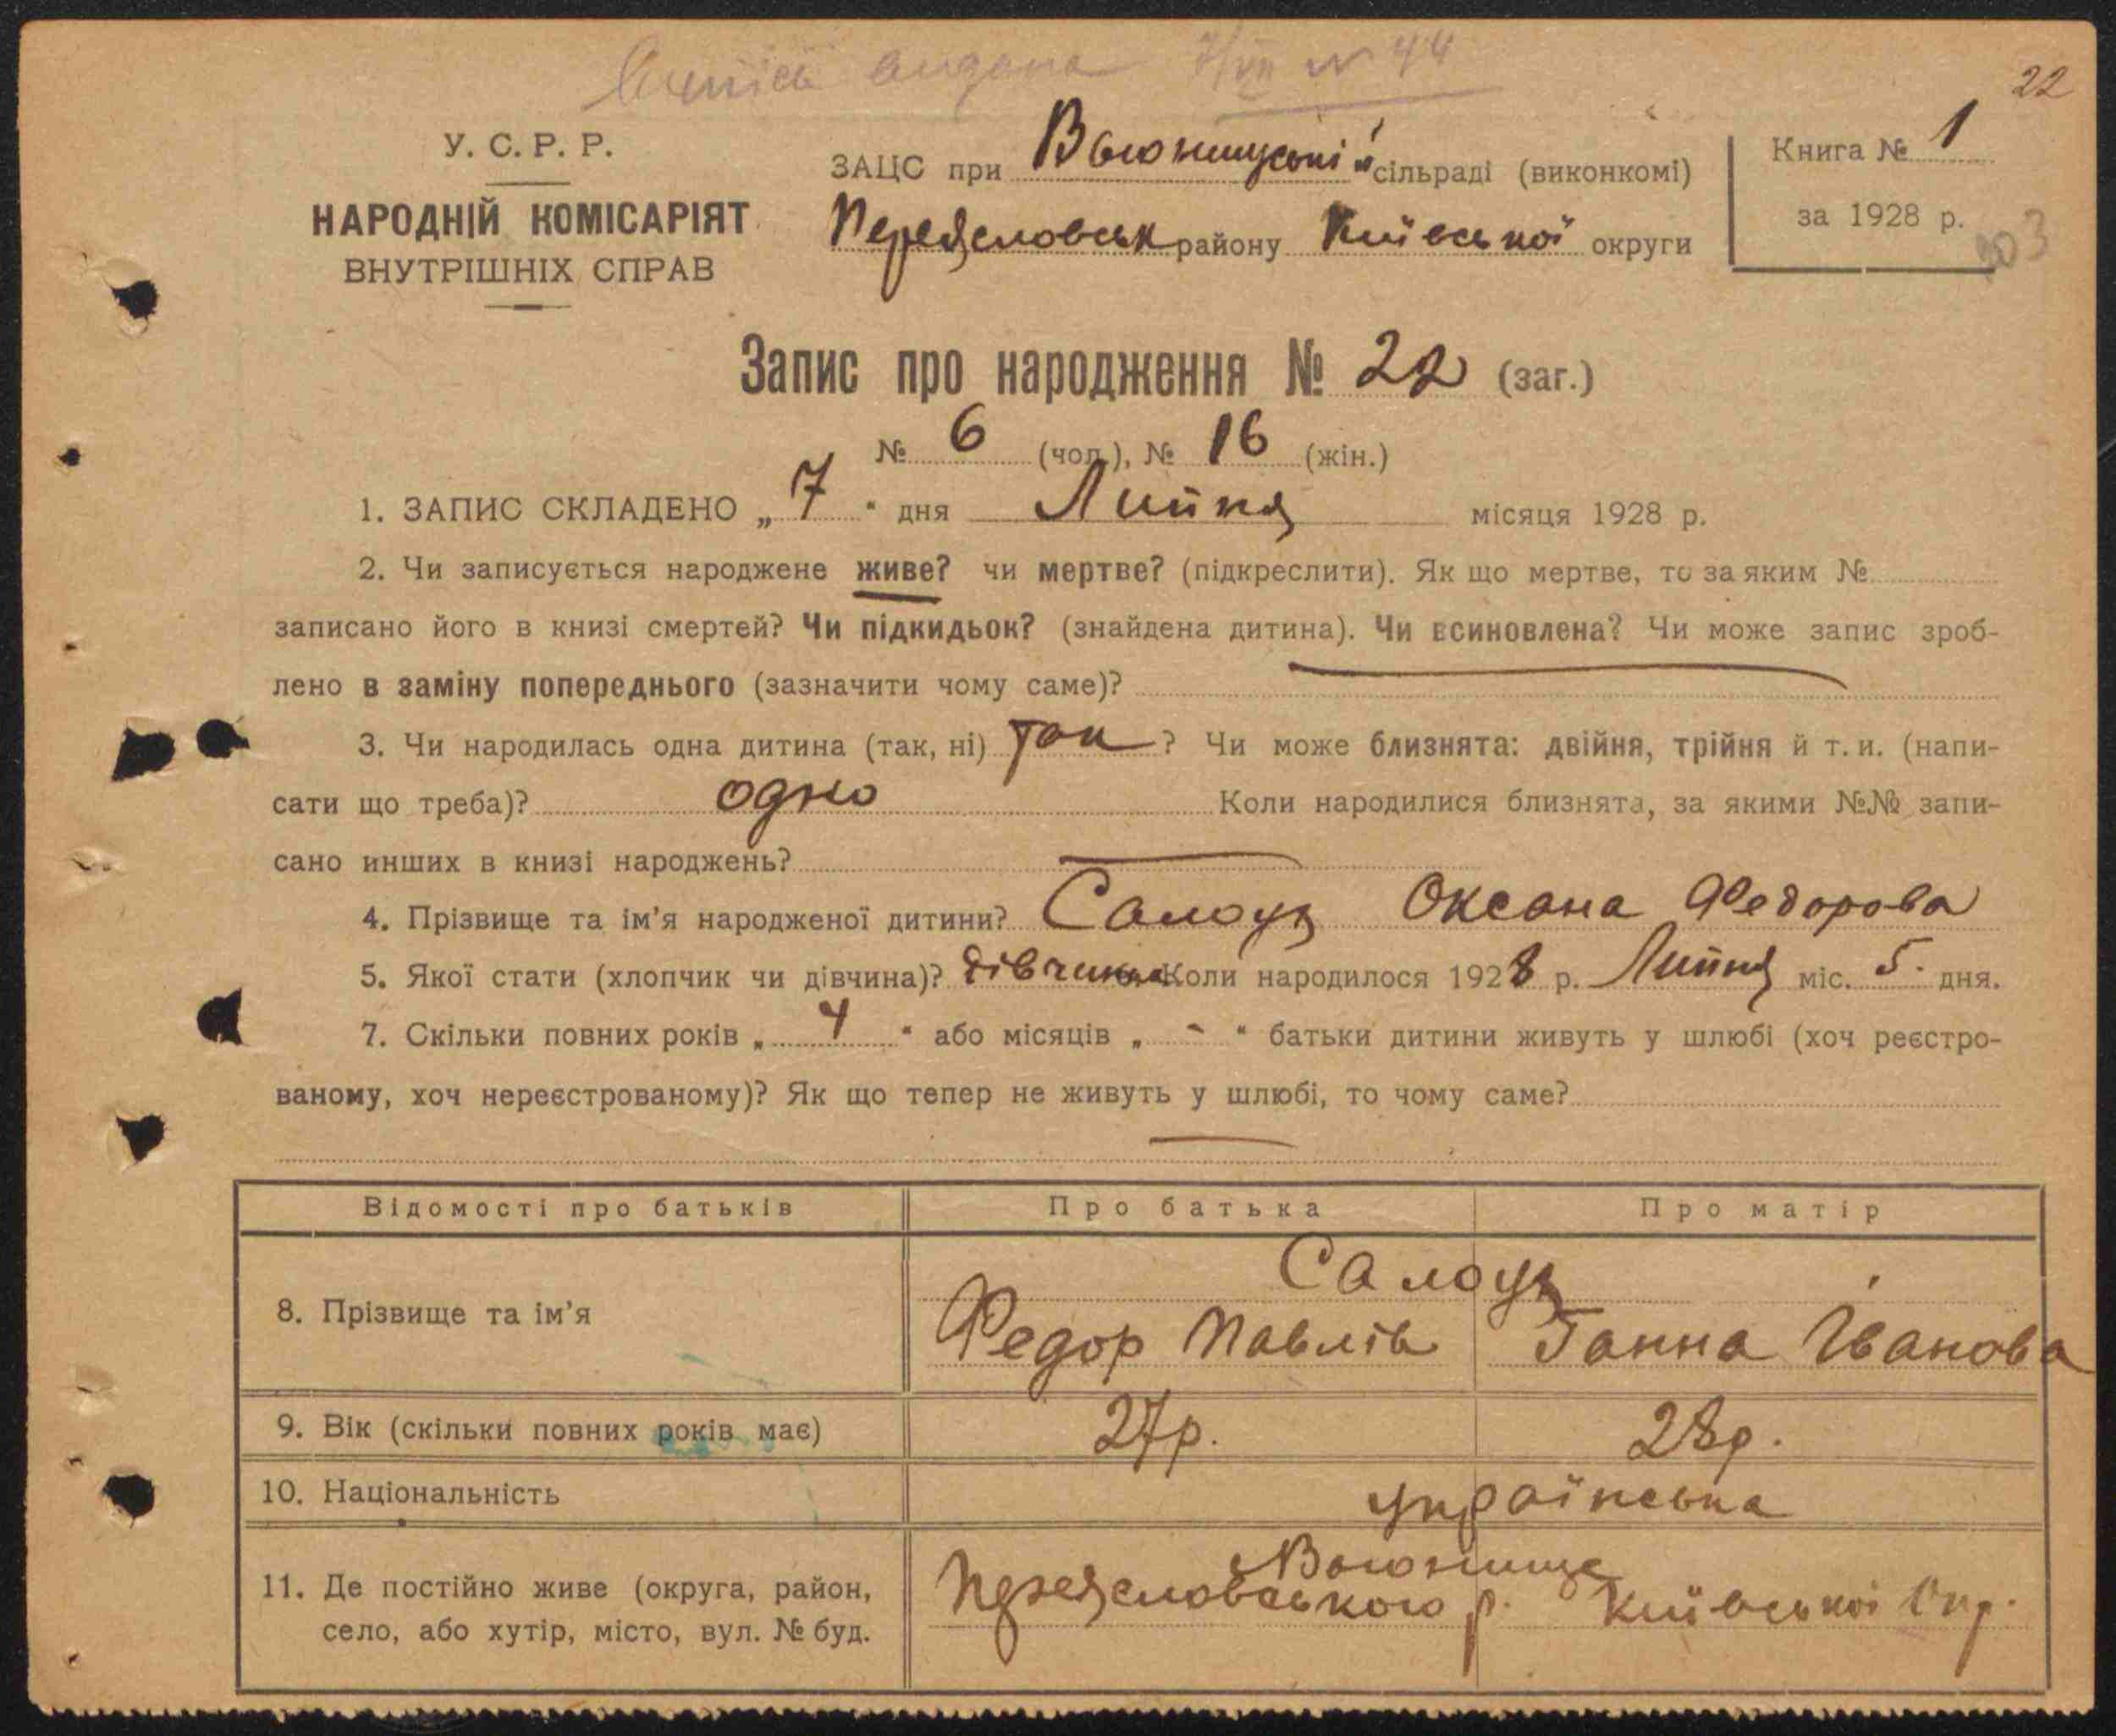 Випись видана 7/VII № 44
22
У. С. Р. Р.
НАРОДНІЙ КОМІСАРІЯТ
ВНУТРІШНІХ СПРАВ
ЗАЦС при Вьюнищській сільраді (виконкомі)
Переяславськ району Київської округи
Книга № 1
за 1928 р.
Запис про народження № 22 (заг.)
№ 6 (чол.), № 16 (жін.)
1. ЗАПИС СКЛАДЕНО „ 7 “ дня Липня місяця 1928 р.
2. Чи записується народжене живе? чи мертве? (підкреслити). Як що мертве, то за яким №
записано його в книзі смертей? Чи підкидьок? (знайдена дитина). Чи всиновлена? Чи може запис зроб-
лено в заміну попереднього (зазначити чому саме)?
3. Чи народилась одна дитина (так, ні) так ? Чи може близнята: двійня, трійня й т. и. (напи-
сати що треба)? одно Коли народилися близнята, за якими №№ запи-
сано инших в книзі народжень?
4. Прізвище та ім'я народженої дитини? Оксана Федорова
5. Якої стати (хлопчик чи дівчина)? дівчина Коли народилося 1928 р. Липня міс. 5. дня.
7. Скільки повних років „ 4 “ або місяців „ - “ батьки дитини живуть у шлюбі (хоч реєстро-
ваному, хоч нереєстрованому)? Як що тепер не живуть у шлюбі, то чому саме?
Відомості про батьків Про батька Про матір
8. Прізвище та ім'я Федор Павлів Ганна Іванова
9. Вік (скільки повних років має) 27р. 28р.
10. Національність українська
Вьюнище
11. Де постійно живе (округа, район, Переяславського р. Київської Окр.
село, або хутір, місто, вул. № буд.